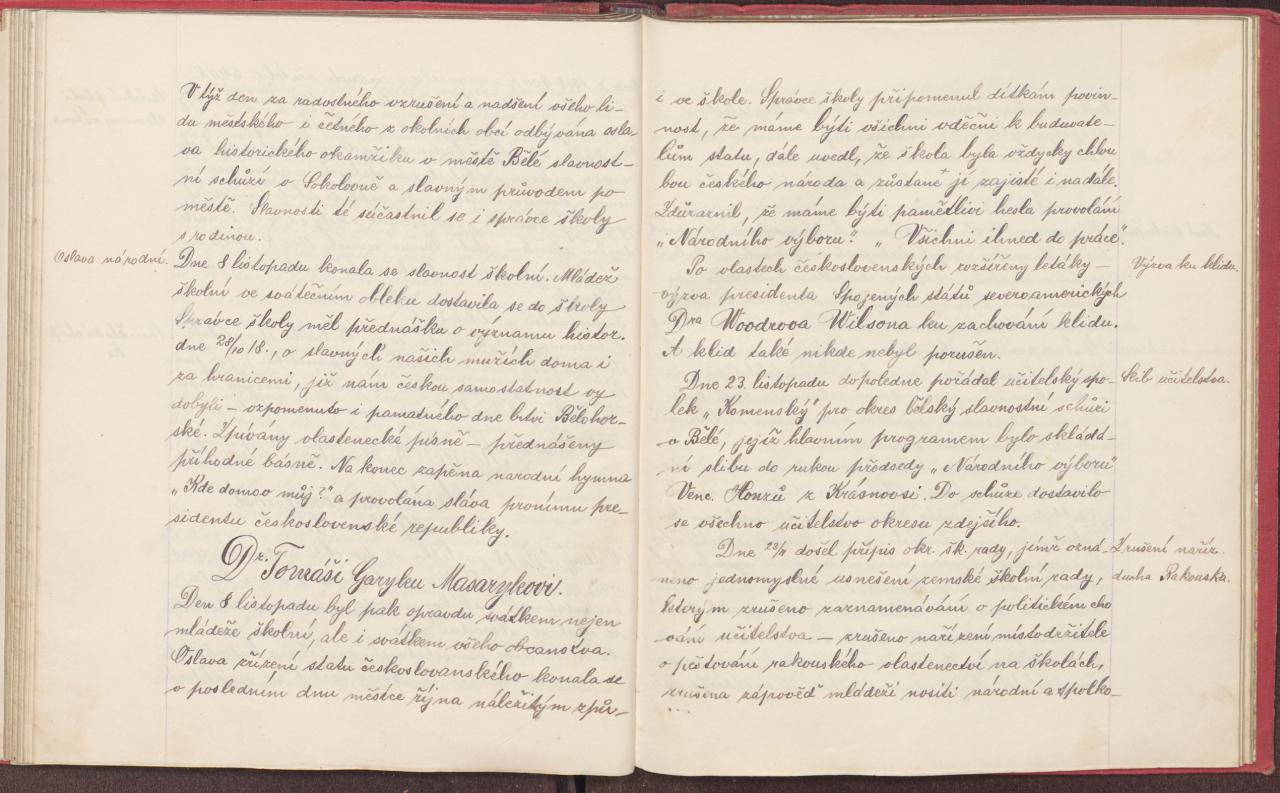 V týž den za radostného vzrušení a nadšení všeho li-
du městského i četného z okolních obcí odbývána osla-
va historického okamžiku v městě Bělé slavnost-
ní schůzí v Sokolovně a slavným průvodem po
městě. Slavnosti té súčastnil se i správce školy
s rodinou.
Oslava národní.
Dne 8 listopadu konala se slavnost školní. Mládež
školní ve svátečním obleku dostavila se do školy
Správce školy měl přednášku o významu histor.
dne 28/10 18., o slavných našich mužích doma i
za hranicemi, již nám českou samostatnost vy
dobyli – vzpomenuto i pamatného dne bitvi Bělohor-
ské. Zpívány vlastenecké písně – přednášeny
příhodné básně. Na konec zapěna narodní hymna
„Kde domov můj?" a provolána sláva prvnímu pre-
sidentu československé republiky.
Dr. Tomáši Garyku Masarykovi.
Den 8 listopadu byl pak opravdu svátkem nejen
mládeže školní, ale i svátkem všeho občanstva.
Oslava zřízení statu českoslovanského konala se
v posledním dnu měsíce října náležitým způ-
i ve škole. Správce školy připomenul dítkám povin-
nost, že máme býti všichni vděčni k budovate-
lům statu, dále uvedl, že škola byla vždycky chlou
bou českého národa a zůstane jí zajisté i nadále.
Zdůraznil, že máme býti pamětlivi hesla provolání
„Národního výboru". „Všichni ihned do práce".
Po vlastech československých rozšířeny letáky –
Výzva ku klidu.
výzva presidenta Spojených států severoamerických
Dra Woodrova Wilsona ku zachování klidu.
A klid také nikde nebyl porušen.
Dne 23. listopadu dopoledne pořádal učitelský spo-
Slib učitelstva.
lek „Komenský" pro okres bělský slavnostní schůzi
v Bělé, jejíž hlavním programem bylo skládá-
ní slibu do rukou předsedy „Národního výboru"
Venc. Honzů z Krásnovsi. Do schůze dostavilo
se všechno učitelstvo okresu zdejšího.
Dne 23/11 došel přípis okr. šk. rady, jímž ozná-
Zrušení naříz.
meno jednomyslné usnešení zemské školní rady,
ducha Rakouska.
kterým zrušeno zaznamenávání o politickém cho
vání učitelstva – zrušeno nařízení místodržitele
o pěstování rakouského vlastenectví na školách,
zrušena zápověď mládeži nositi národní a spolko-